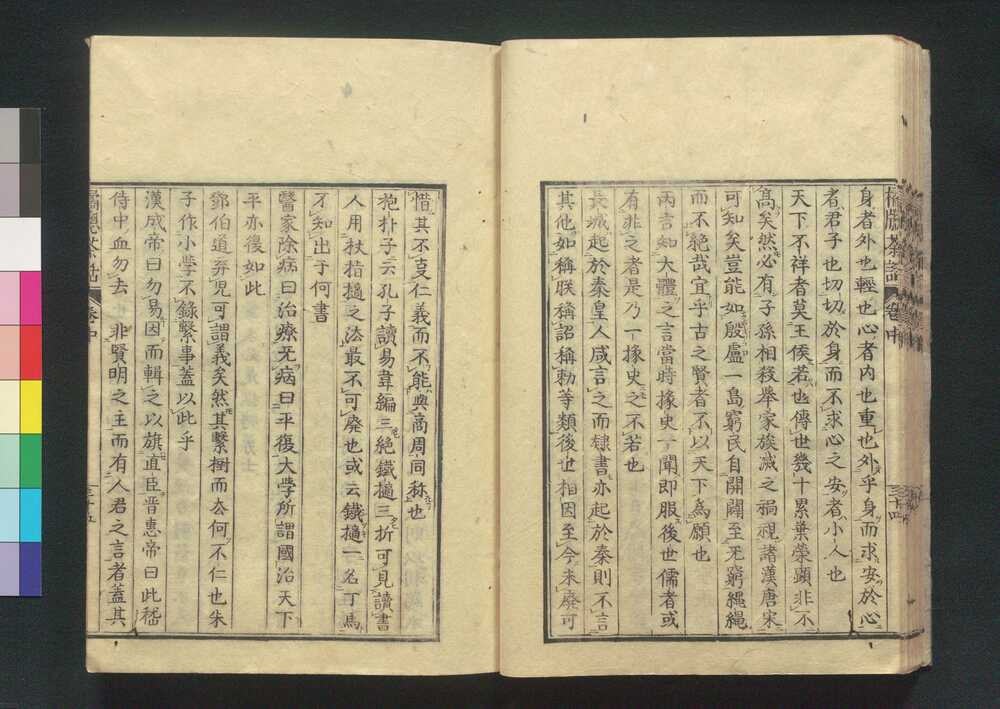 橘牕茶話 卷中 三十四
身者外也輕也心者内也重也外乎身而求安於心
者君子也切切於身而不求心之安者小人也
天下不祥者莫王侯若也傳世幾十累葉榮顯非不
髙矣然必有子孫相殘舉家族滅之禍視諸漢唐宋
可知矣豈能如殷盧一島窮民自開闢至无窮縄縄
而不絶哉宜乎古之賢者不以天下為願也
兩言知大體之言當時掾史一聞即服後世儒者或
有非之者是乃一掾史之不若也
長城起於秦皇人咸言之而隸書亦起於秦則不言
其他如稱朕稱詔稱勅等類後世相因至今未廢可
惜其不支仁義而不能與商周同称也
抱朴子云孔子讀易韋編三絶鐵撾三折可見讀書
人用扶指撾之法最不可廢也或云鐵撾一名丁馬
不知出于何書
醫家除病曰治療无病曰平復大學所謂國治天下
平亦復如此
鄧伯道弃児可謂義矣然其繫樹而去何不仁也朱
子作小學不錄繫事蓋以此乎
漢成帝曰勿易因而輯之以旗直臣晋惠帝曰此嵇
侍中血勿去 非賢明之主而有人君之言者蓋其
橘牕茶話 卷中 三十五